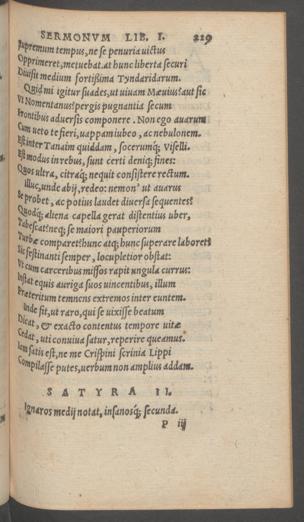 SERMONVM LIB. I. 219
Supremum tempus, ne se penuria uictus
Opprimeret, metuebat. at hunc liberta securi
Diuisit medium fortissima Tyndaridarum.
Quid mi igitur suades, ut uiuam Mæuius? aut sic
Vt Nomentanus? pergis pugnantia secum
Frontibus aduersis componere. Non ego auarum
Cum ueto te fieri, uappam iubeo, ac nebulonem.
Est inter Tanaim quiddam, socerumq; Viselli.
Est modus in rebus, sunt certi deniq; fines:
Quos ultra, citraq; nequit consistere rectum.
Illuc, unde abij, redeo: nemon' ut auarus
Se probet, ac potius laudet diuersa sequentes?
Quodq; aliena capella gerat distentius uber,
Tabescat? neq; se maiori pauperiorum
Turbæ comparet? hunc atq; hunc superare laboret?
Sic festinanti semper, locupletior obstat:
Vt cum carceribus missos rapit ungula currus:
Instat equis auriga suos uincentibus, illum
Præteritum temnens extremos inter euntem.
Inde fit, ut raro, qui se uixisse beatum
Dicat, & exacto contentus tempore uitæ
Cedat, uti conuiua satur, reperire queamus.
Iam satis est, ne me Crispini scrinia Lippi
Compilasse putes, uerbum non amplius addam.
SATYRA II.
Ignaros medij notat, insanosq; secunda.
P iij